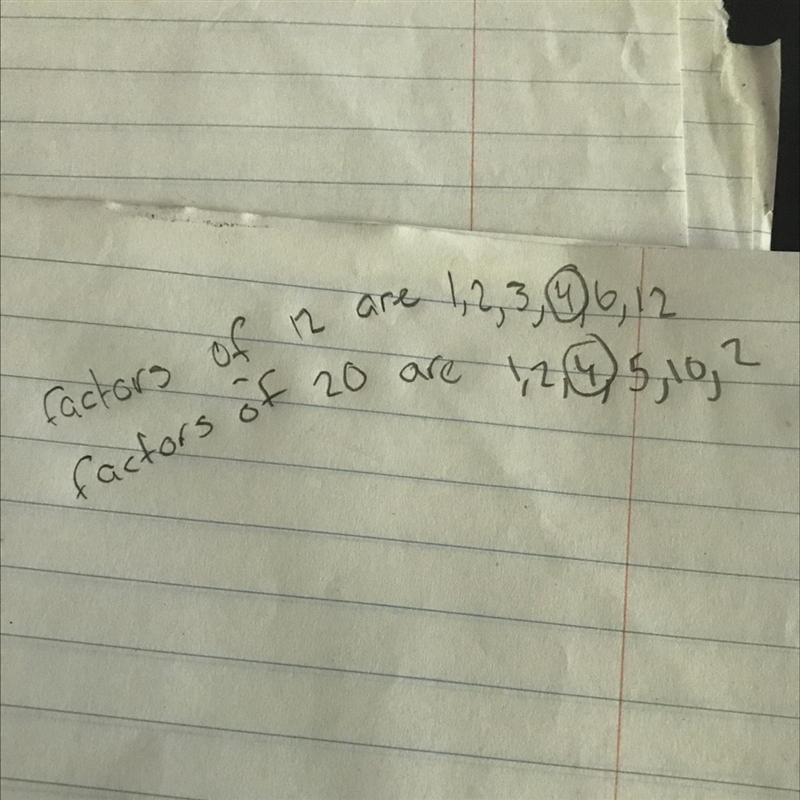 factors of 12 are 1,2,3,4,6,12
factors of 20 are 1,2,4,5,10,2